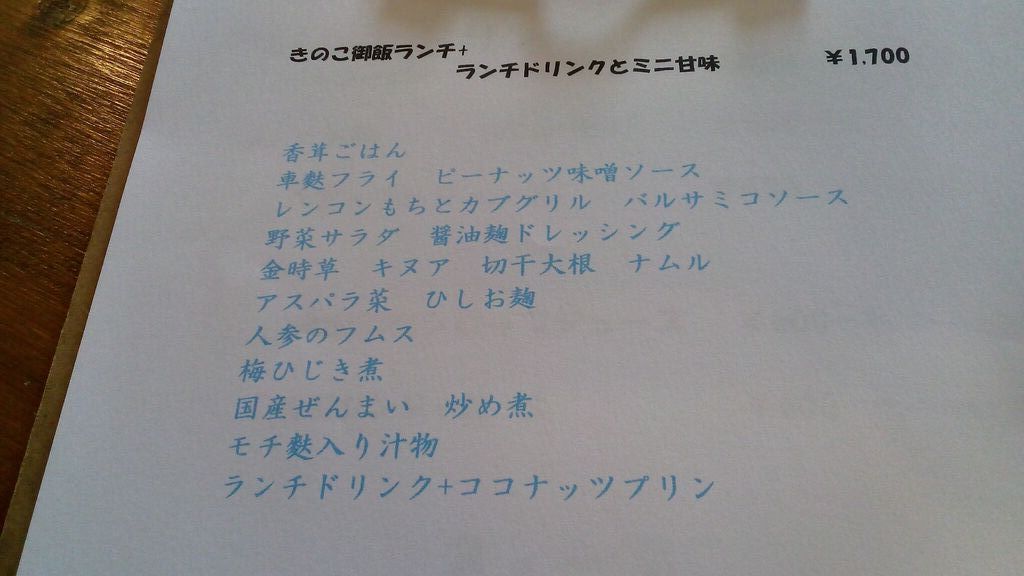 きのこ御飯ランチ+
ランチドリンクとミニ甘味 ￥1,700
香茸ごはん
車麩フライ ピーナッツ味噌ソース
レンコンもちとカブグリル バルサミコソース
野菜サラダ 醤油麹ドレッシング
金時草 キヌア 切干大根 ナムル
アスパラ菜 ひしお麹
人参のフムス
梅ひじき煮
国産ぜんまい 炒め煮
モチ麩入り汁物
ランチドリンク+ココナッツプリン